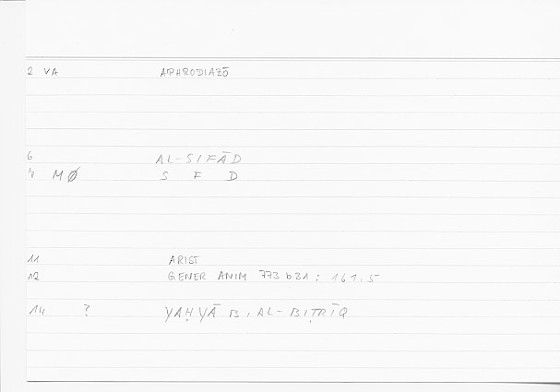 2 VA APHRODIAZŌ
6 AL-SIFĀD
MØ S F D
11 ARIST
12 GENER ANIM 773 b31 : 161.5
14 ? YAḤYĀ B. AL-BIṬRĪQ